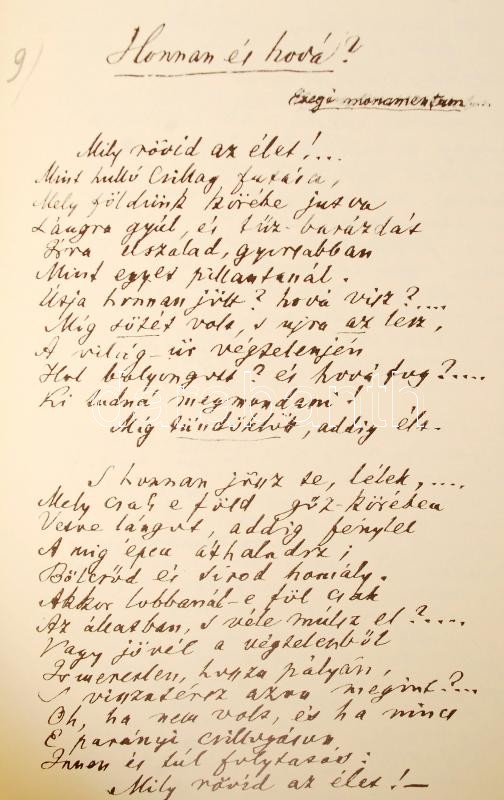 9)
Honnan és hová?
Exegi monumentum...
Mily rövid az élet!...
Mint hulló csillag futása,
Mely földünk körébe jutva
Lángra gyúl, és tűz-barázdát
Írva elszálad, gyorsabban
Mint egyet pillantanál.
Útja honnan jött? hová visz?....
Míg sötét volt, s ujra az lesz,
A világ-űr végtelenjén
Hol bolyongott? és hová fog?....
Ki tudná megmondani!
Míg tündöklött, addig élt.
S honnan jösz te, lélek,....
Mely csak e föld gőz-körében
Vetve lángot, addig fénylel
A míg épen áthaladsz;
Bölcsőd és sírod homály.
Akkor lobbanál-e föl csak
Az állatban, s véle múlsz el?....
Vagy jövél a végtelenből
Ismeretlen, hosszu pályán,
S visszatérsz azon megint?...
Oh, ha nem volt, és ha nincs
E parányi csillogáson
Innen és túl folytatás:
Mily rövid az élet! —